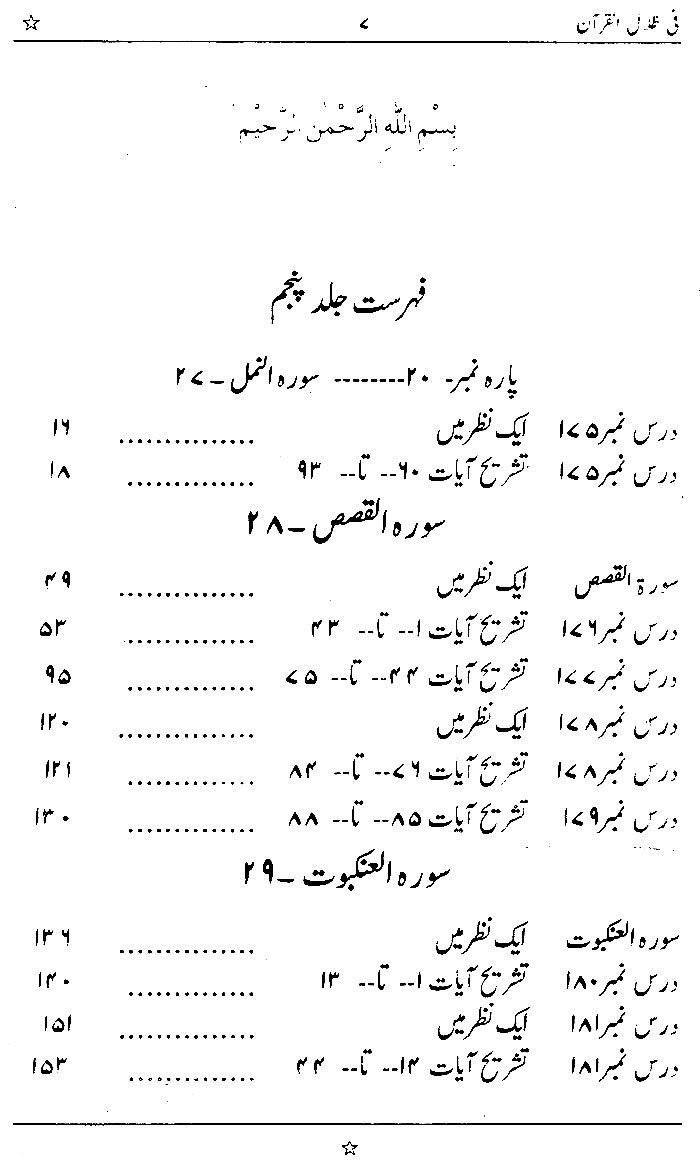 فی ظلال القرآن ۷ ☆
بِسْمِ اللّٰهِ الرَّحْمٰنِ الرَّحِیْمِ
فہرست جلد پنجم
پارہ نمبر۔ ۲۰ -------- سورہ النمل ۔ ۲۷
درس نمبر ۱۷۵ ایک نظر میں ............... ۱۶
درس نمبر ۱۷۵ تشریح آیات ۶۰-- تا-- ۹۳ .............. ۱۸
سورہ القصص ۔ ۲۸
سورۃ القصص ایک نظر میں ............... ۴۹
درس نمبر ۱۷۶ تشریح آیات ۱-- تا-- ۴۳ .............. ۵۳
درس نمبر ۱۷۷ تشریح آیات ۴۴-- تا-- ۷۵ .............. ۹۵
درس نمبر ۱۷۸ ایک نظر میں ............... ۱۲۰
درس نمبر ۱۷۸ تشریح آیات ۷۶-- تا-- ۸۴ .............. ۱۲۱
درس نمبر ۱۷۹ تشریح آیات ۸۵-- تا-- ۸۸ .............. ۱۳۰
سورہ العنکبوت ۔ ۲۹
سورہ العنکبوت ایک نظر میں ............... ۱۳۶
درس نمبر ۱۸۰ تشریح آیات ۱-- تا-- ۱۳ .............. ۱۴۰
درس نمبر ۱۸۱ ایک نظر میں ............... ۱۵۱
درس نمبر ۱۸۱ تشریح آیات ۱۴-- تا-- ۴۴ .............. ۱۵۳
☆